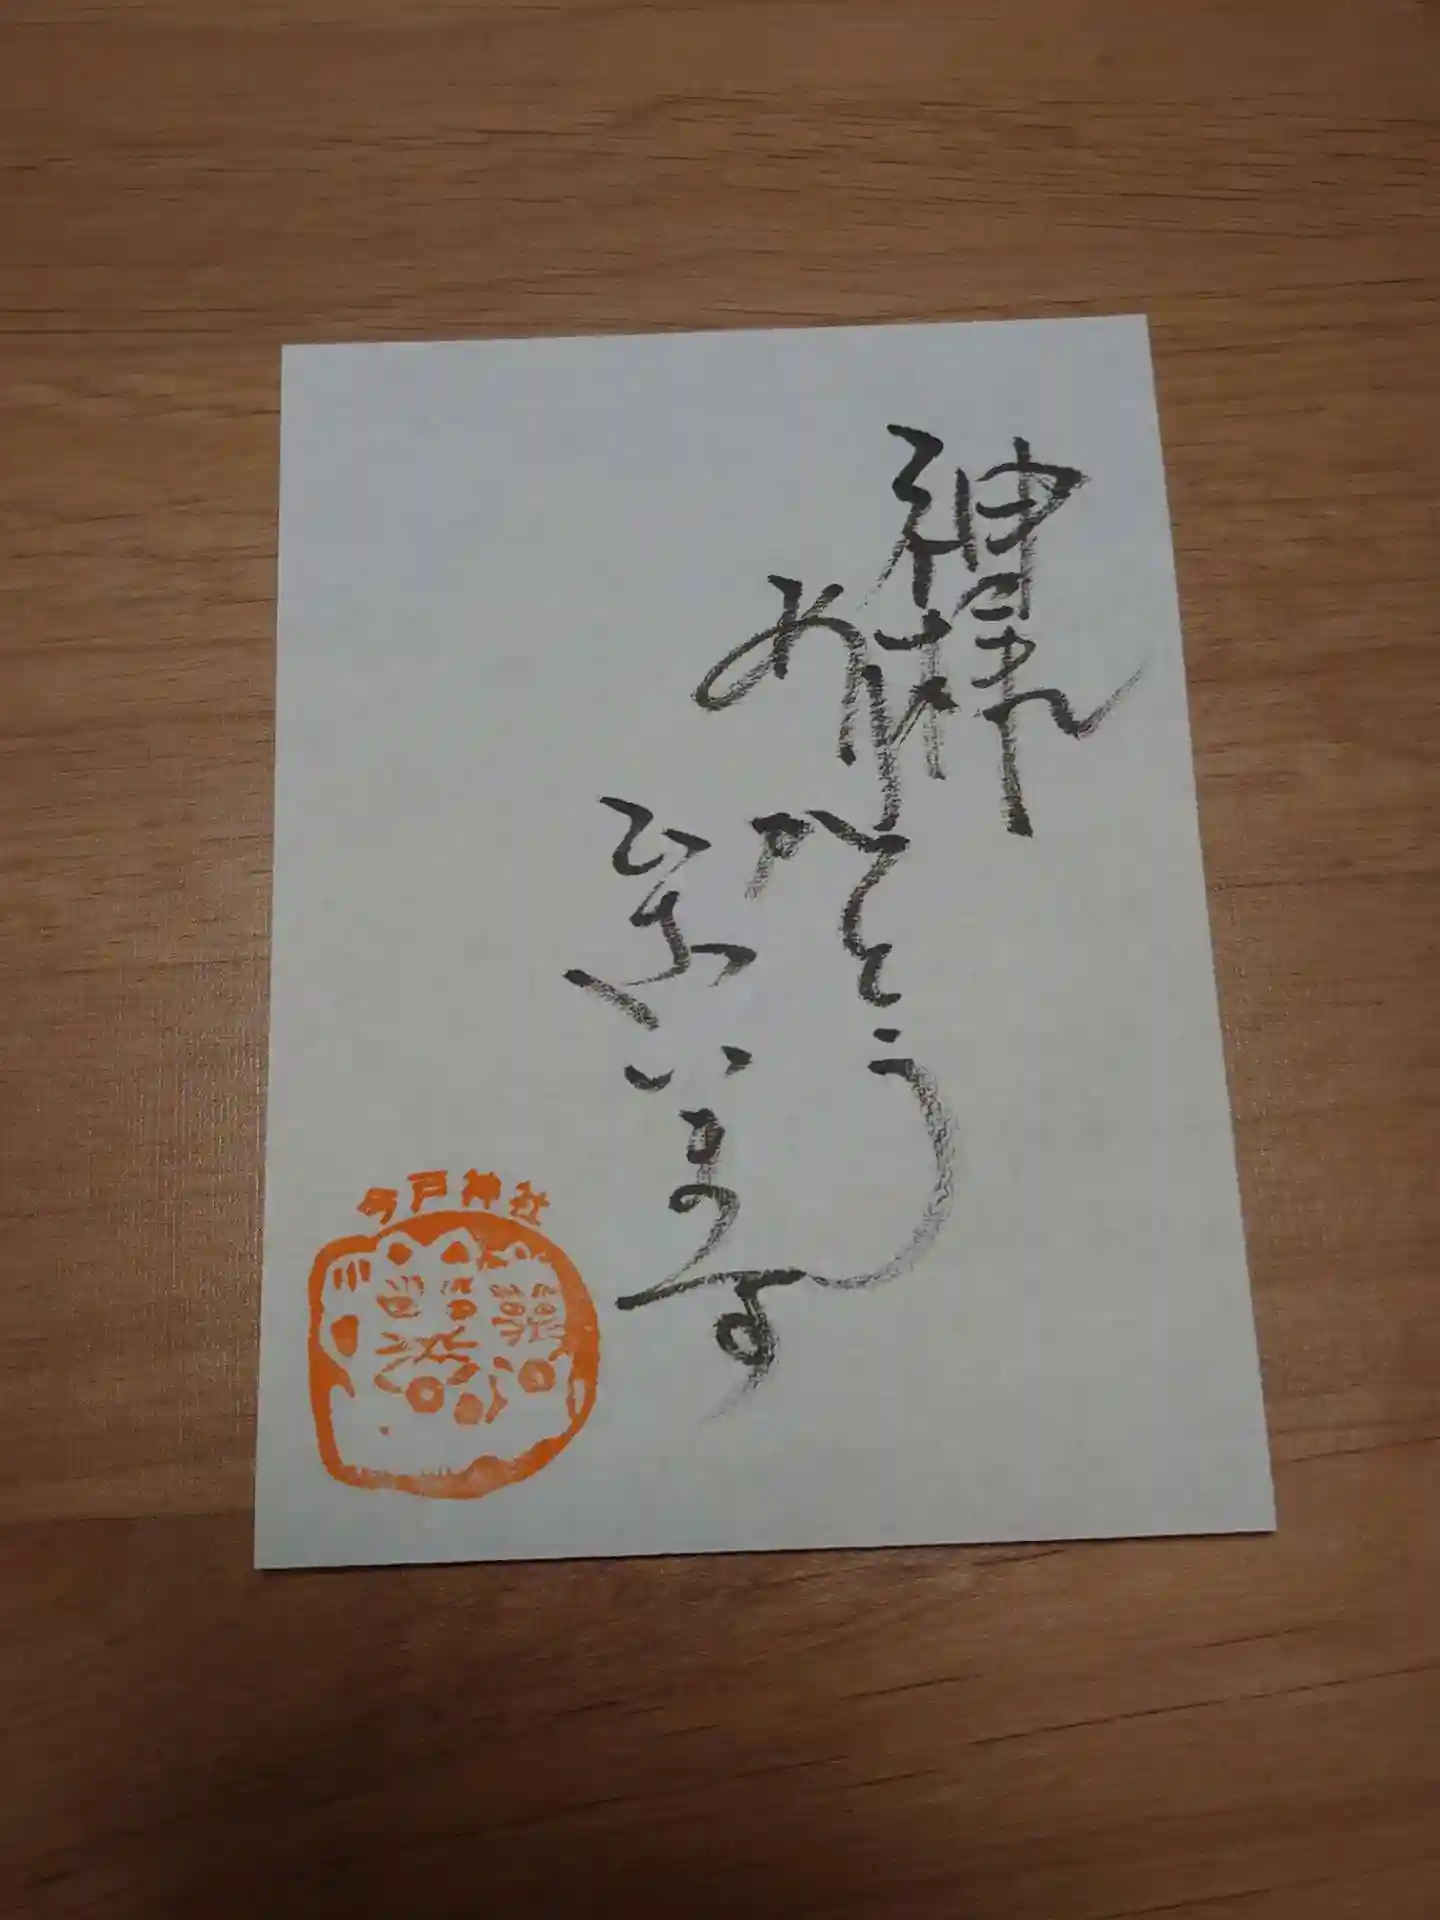 神様
ありがとう
ございます
今戸神社